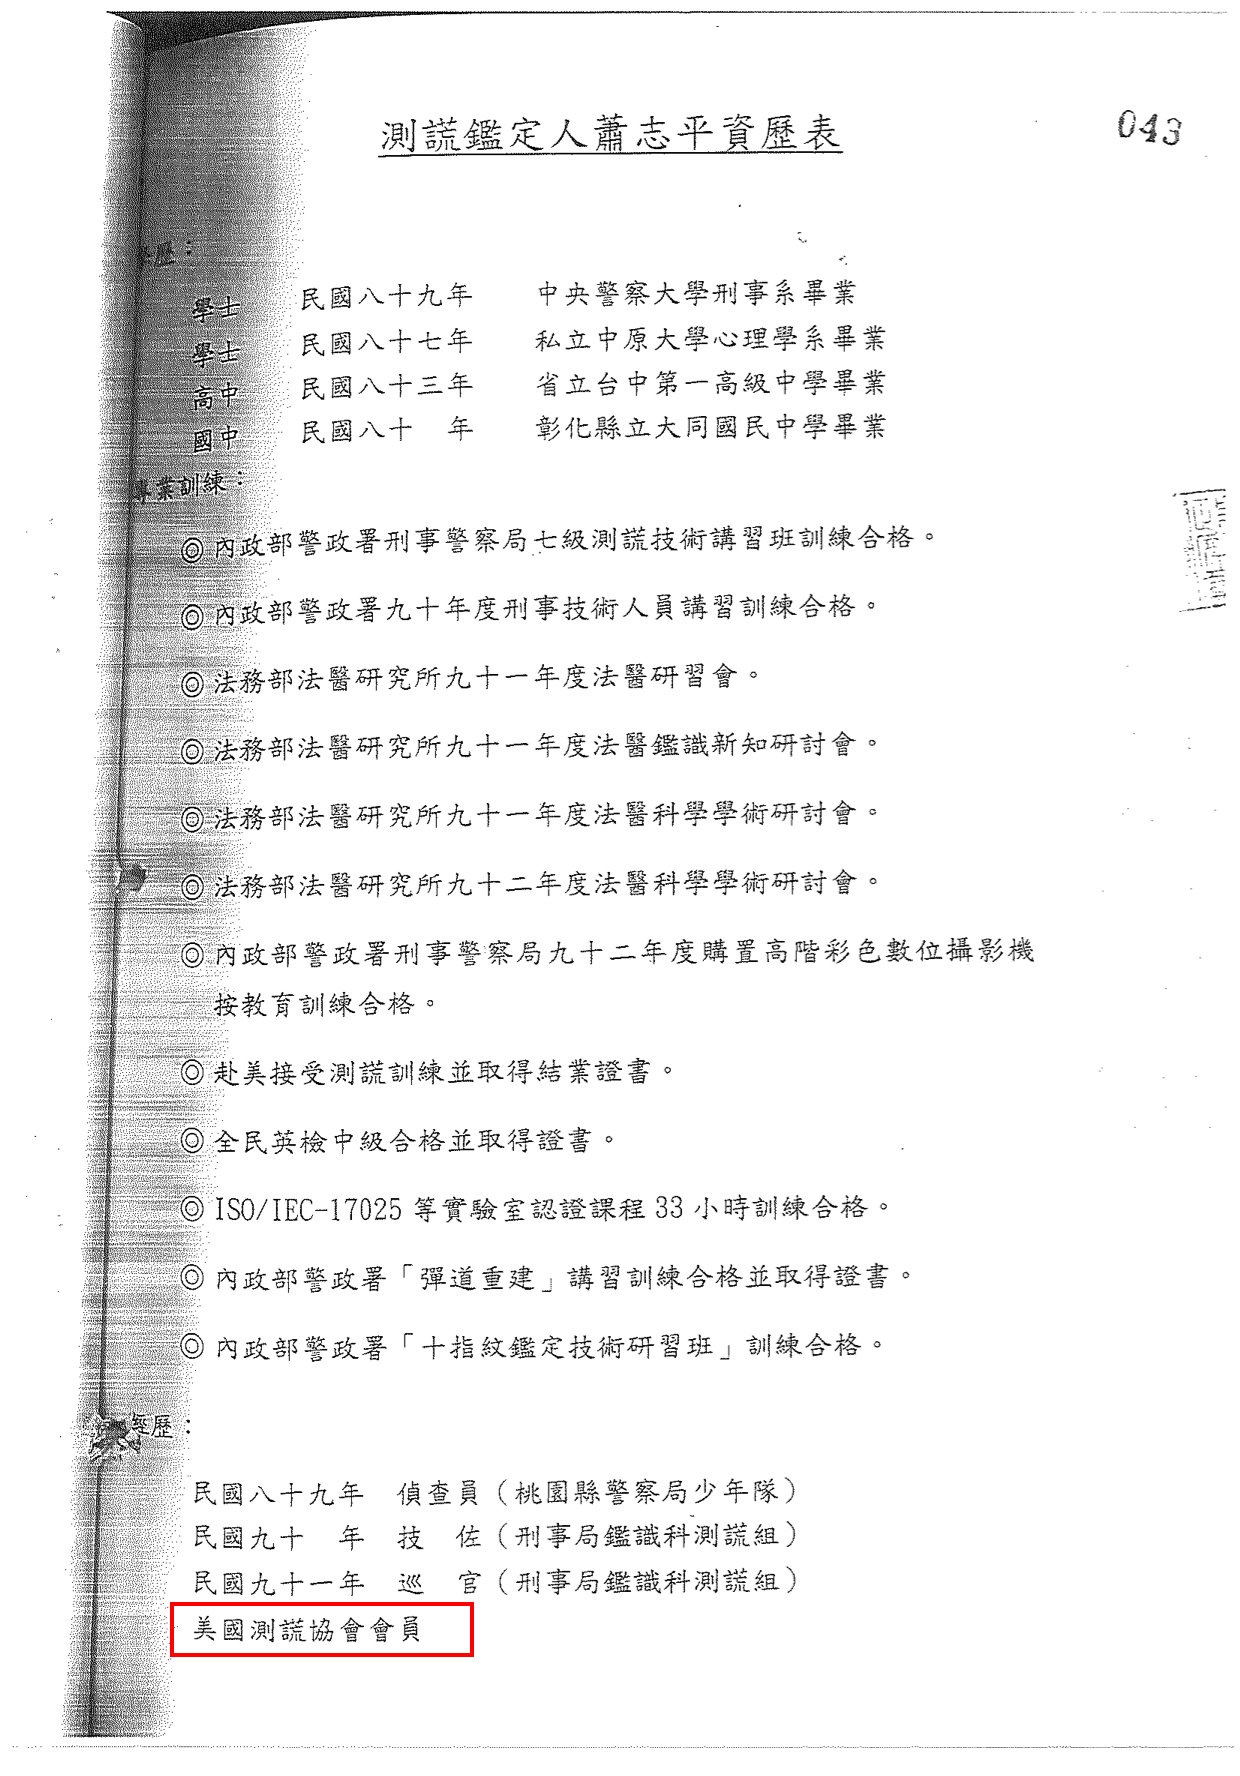 測謊鑑定人蕭志平資歷表
043
學歷：
學士 民國八十九年 中央警察大學刑事系畢業
學士 民國八十七年 私立中原大學心理學系畢業
高中 民國八十三年 省立台中第一高級中學畢業
國中 民國八十 年 彰化縣立大同國民中學畢業
專業訓練：
◎內政部警政署刑事警察局七級測謊技術講習班訓練合格。
◎內政部警政署九十年度刑事技術人員講習訓練合格。
◎法務部法醫研究所九十一年度法醫研習會。
◎法務部法醫研究所九十一年度法醫鑑識新知研討會。
◎法務部法醫研究所九十一年度法醫科學學術研討會。
◎法務部法醫研究所九十二年度法醫科學學術研討會。
◎內政部警政署刑事警察局九十二年度購置高階彩色數位攝影機
按教育訓練合格。
◎赴美接受測謊訓練並取得結業證書。
◎全民英檢中級合格並取得證書。
◎ISO/IEC-17025 等實驗室認證課程 33 小時訓練合格。
◎內政部警政署「彈道重建」講習訓練合格並取得證書。
◎內政部警政署「十指紋鑑定技術研習班」訓練合格。
經歷：
民國八十九年 偵查員（桃園縣警察局少年隊）
民國九十 年 技 佐（刑事局鑑識科測謊組）
民國九十一年 巡 官（刑事局鑑識科測謊組）
美國測謊協會會員